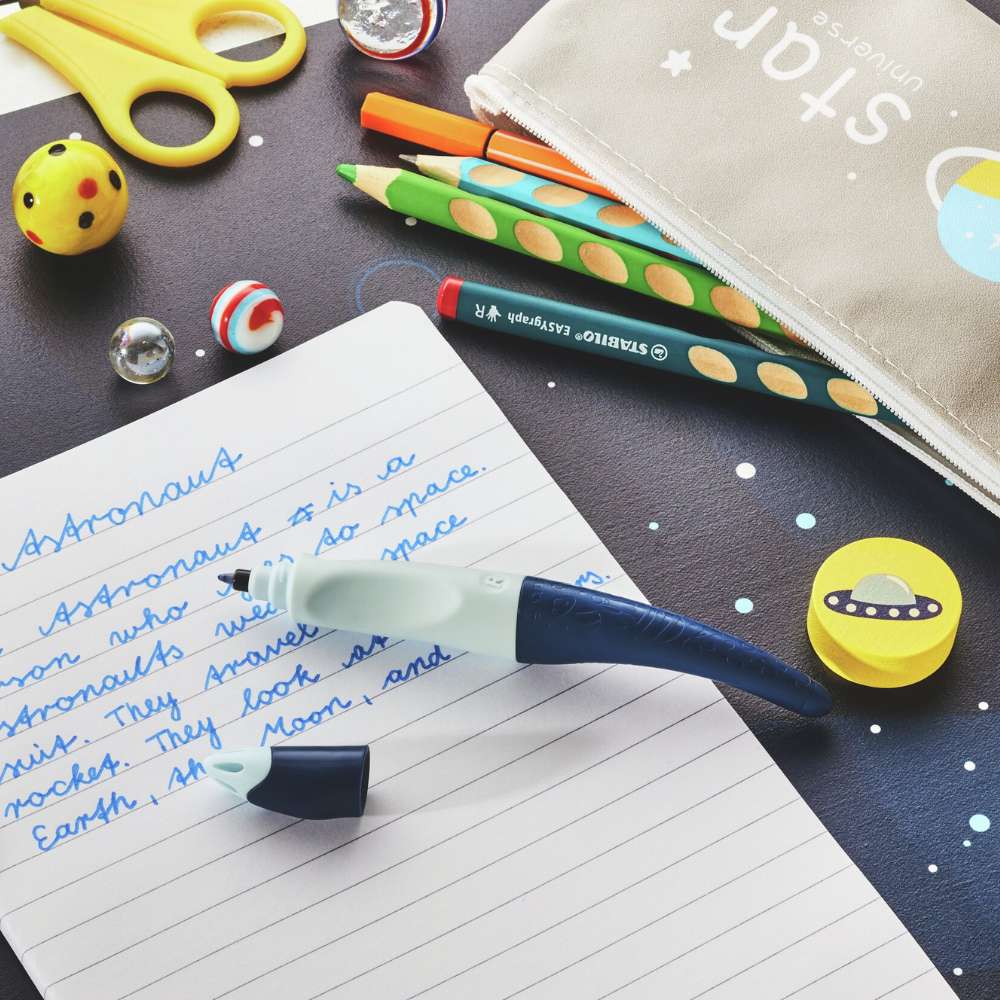 Star
universe
STABILO® EASYgraph R
Astronaut
Astronaut is a
rson who goes to space.
stronauts wea space
suit. They travel
rocket. They look at
Earth, th Moon, and rs.
R